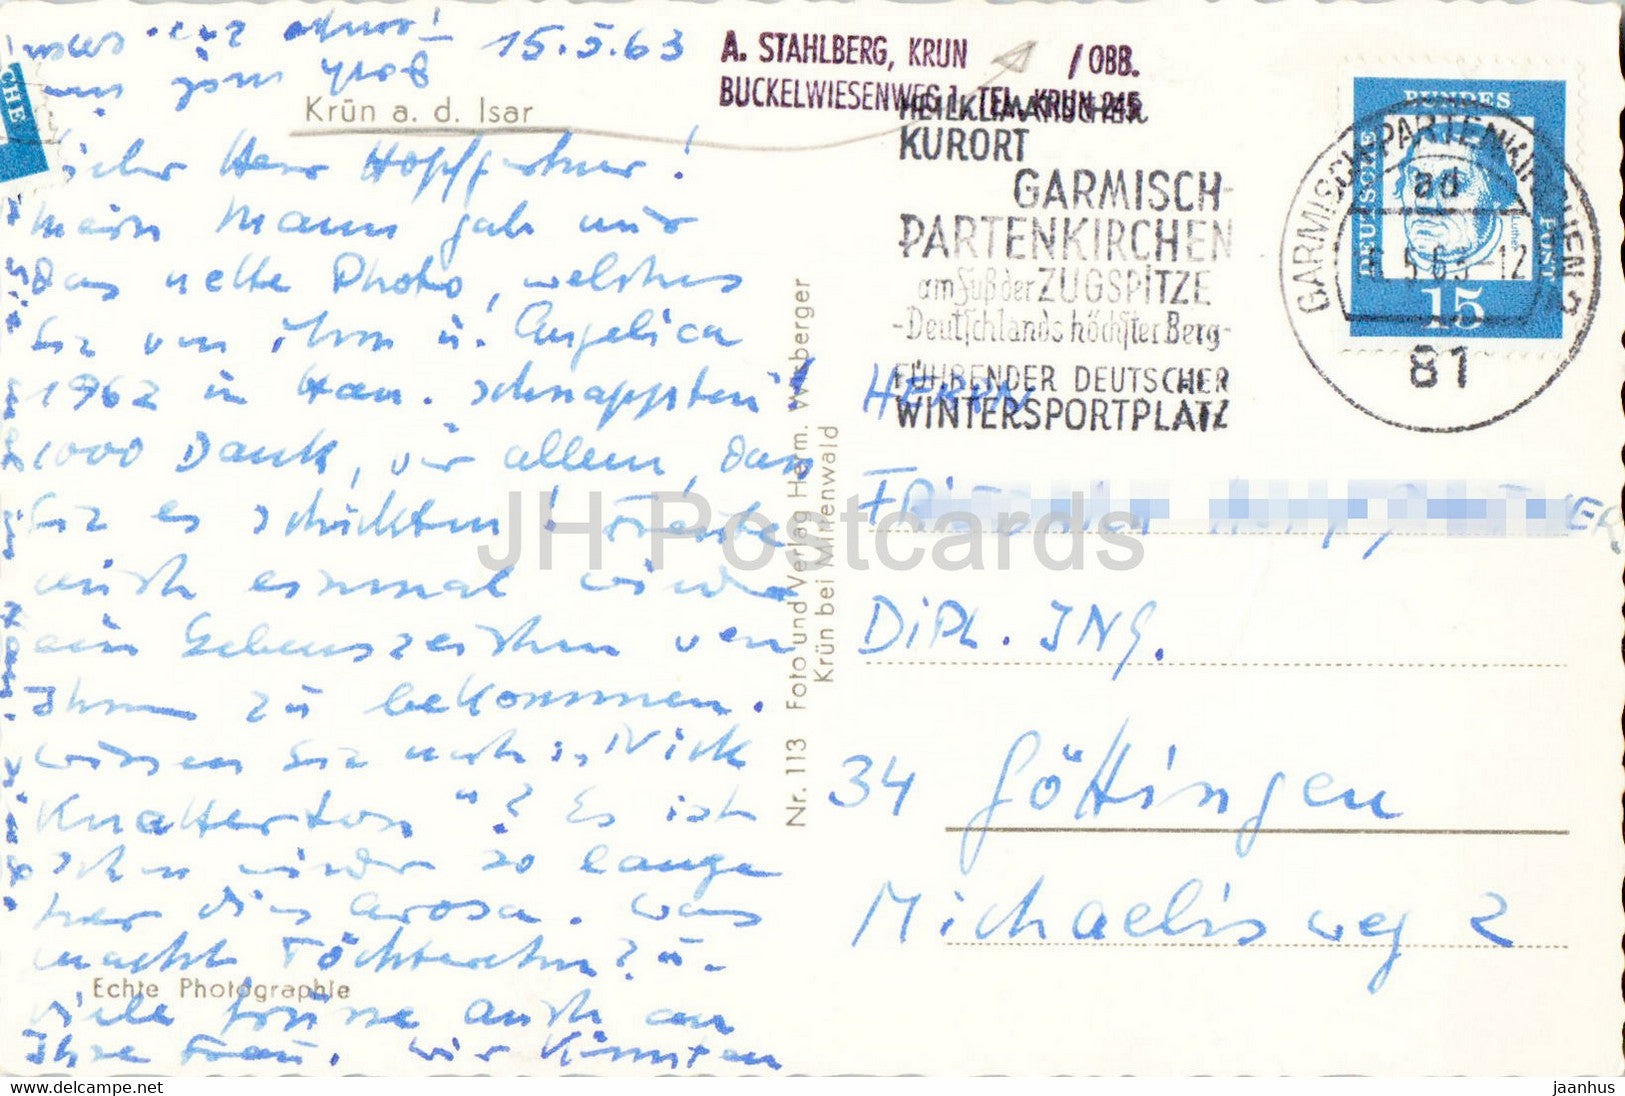 15.5.63
uns zum groß
Krün a. d. Isar
A. STAHLBERG, KRUN /OBB.
BUCKELWIESENWEG 1, TEL. KRUN 245
Lieber Herr Hopfgartner!
mein Mann gab mir
das nette Photo, welches
Sie von ihm u. Angelica
1962 in Han. schnappten!
1000 Dank, vor allem, dass
Sie es schickten! Freute
mich einmal wieder
ein Lebenszeichen von
Ihnen zu bekommen.
Wissen Sie noch: "Nick
Knatterton"? Es ist
schon wieder so lange
her dies Arosa. Was
macht Töchterchen? u.
viele Grüsse auch an
Ihre Frau. Wir könnten
Echte Photographie
Nr. 113 Foto und Verlag Herm. Wirberger
Krün bei Mittenwald
HEILKLIMATISCHER
KURORT
GARMISCH-
PARTENKIRCHEN
am Fuß der ZUGSPITZE
-Deutschlands höchster Berg-
FÜHRENDER DEUTSCHER
WINTERSPORTPLATZ
GARMISCH-PARTENKIRCHEN 2
ad
5.63-12
81
DEUTSCHE BUNDES POST
15
HERRN
DiPL. ING.
34 Göttingen
Michaelisweg 2
JH Postcards
www.delcampe.net
jaanhus